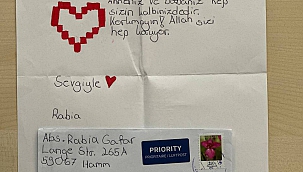 Anneniz ve babanız hep
sizin kalbinizdedir.
Korkmayın! Allah sizi
hep koruyor.
Sevgiyle
Rabia
Abs. Rabia Gafar
Lange Str. 265A
59067 Hamm
PRIORITY
PRIORITAIRE / LUFTPOST